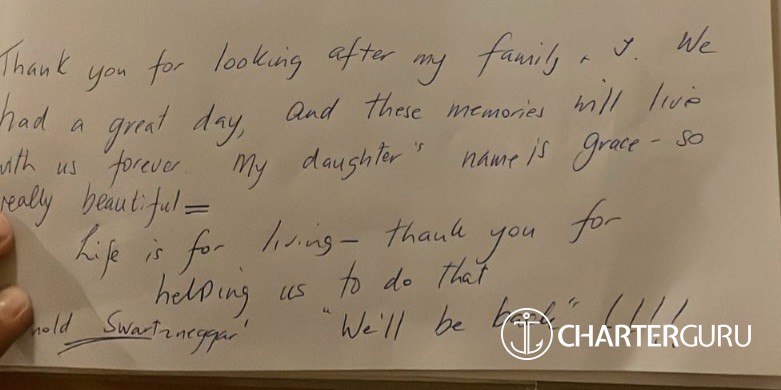 Thank you for looking after my family & I. We
had a great day, and these memories will live
with us forever. My daughter's name is grace - so
really beautiful =
Life is for living - thank you for
helping us to do that
nold Swartzneggar' "We'll be back" (!!!!
CHARTERGURU